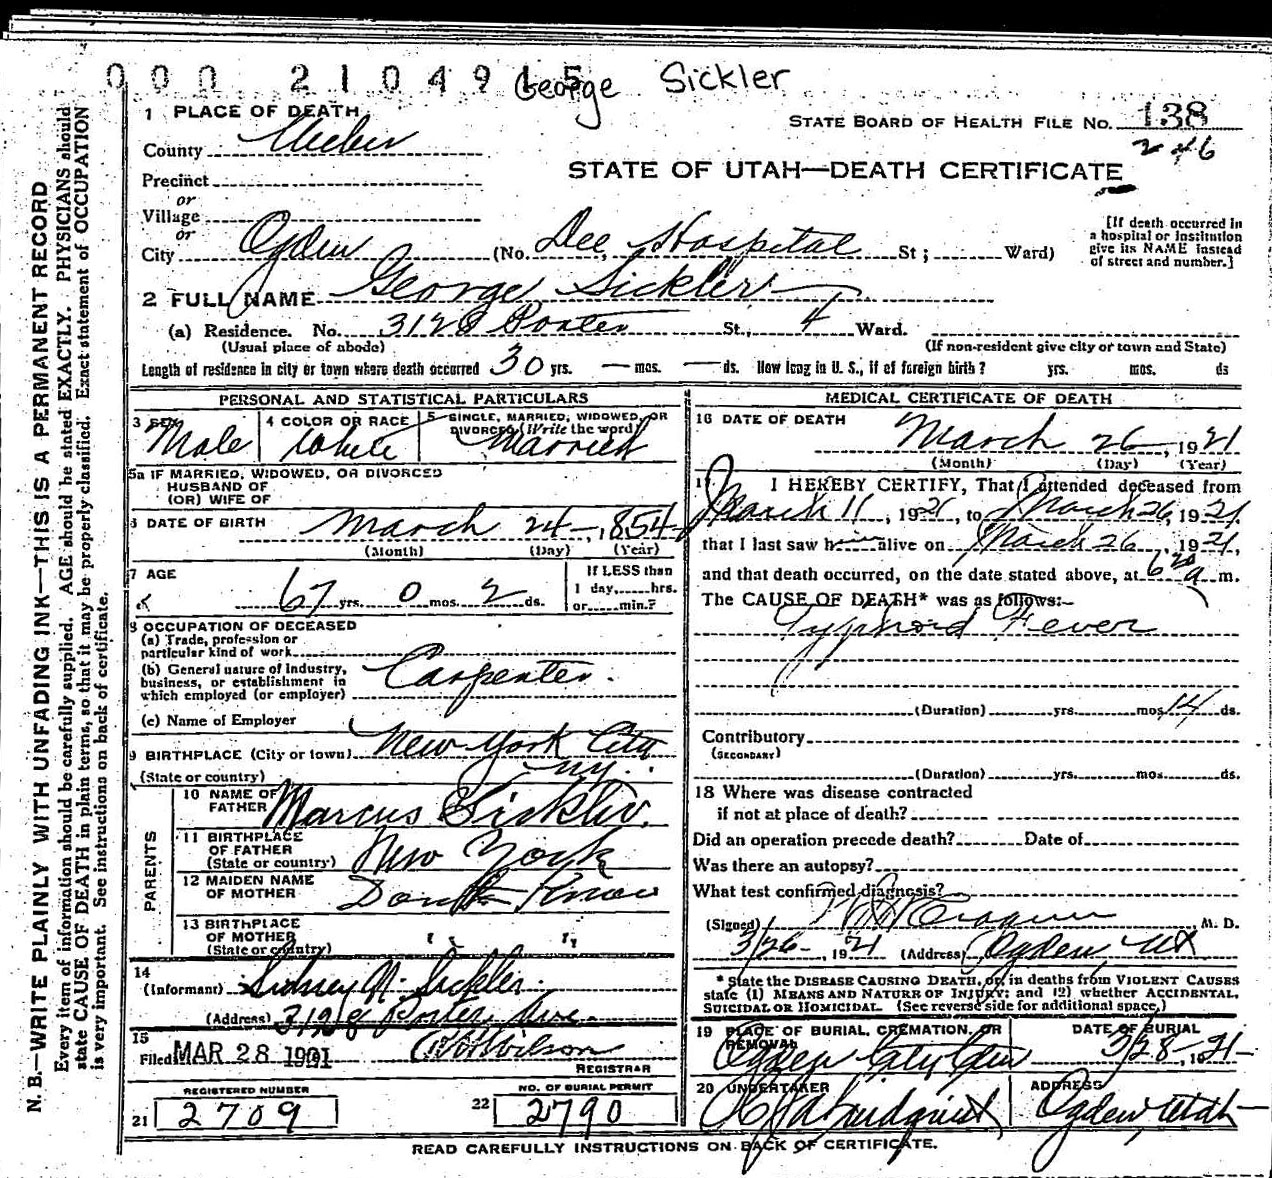 000 2104915 George Sickler
1 PLACE OF DEATH
STATE BOARD OF HEALTH FILE NO. 138
246
County Weber
STATE OF UTAH—DEATH CERTIFICATE
Precinct
or
Village
or
City Ogden (No. Dee Hospital St; Ward)
[If death occurred in
a hospital or institution
give its NAME instead
of street and number.]
2 FULL NAME George Sickler
(a) Residence. No. 3128 Porter St., 4 Ward.
(Usual place of abode) (If non-resident give city or town and State)
Length of residence in city or town where death occurred 30 yrs. — mos. — ds. How long in U. S., if of foreign birth? yrs. mos. ds
PERSONAL AND STATISTICAL PARTICULARS
3 SEX
Male
4 COLOR OR RACE
White
5 SINGLE, MARRIED, WIDOWED, OR
DIVORCED (Write the word)
Married
5a IF MARRIED, WIDOWED, OR DIVORCED
HUSBAND OF
(OR) WIFE OF
6 DATE OF BIRTH March 24, 1854
(Month) (Day) (Year)
7 AGE
67 yrs. 0 mos. 2 ds.
If LESS than
1 day, hrs.
or min.?
8 OCCUPATION OF DECEASED
(a) Trade, profession or
particular kind of work
(b) General nature of Industry,
business, or establishment in
which employed (or employer) Carpenter.
(c) Name of Employer
9 BIRTHPLACE (City or town) New York City
(State or country) N.Y.
PARENTS
10 NAME OF
FATHER Marcus Sickler.
11 BIRTHPLACE
OF FATHER
(State or country) New York
12 MAIDEN NAME
OF MOTHER
13 BIRTHPLACE
OF MOTHER
(State or country) " "
14
(Informant) Sidney N. Sickler.
(Address) 3128 Porter Ave.
15
Filed MAR 28 1921 Wilson
REGISTRAR
REGISTERED NUMBER
21 2709
NO. OF BURIAL PERMIT
22 2790
MEDICAL CERTIFICATE OF DEATH
16 DATE OF DEATH
March 26, 1921
(Month) (Day) (Year)
17 I HEREBY CERTIFY, That I attended deceased from
March 11, 1921, to March 26, 1921,
that I last saw him alive on March 26, 1921,
and that death occurred, on the date stated above, at 6 20 a m.
The CAUSE OF DEATH* was as follows:—
Typhoid Fever
(Duration) yrs. mos. 14 ds.
Contributory
(SECONDARY)
(Duration) yrs. mos. ds.
18 Where was disease contracted
if not at place of death?
Did an operation precede death? Date of
Was there an autopsy?
What test confirmed diagnosis?
(Signed) M. D.
3/26, 1921 (Address) Ogden, Ut
* State the DISEASE CAUSING DEATH, or, in deaths from VIOLENT CAUSES
state (1) MEANS AND NATURE OF INJURY; and (2) whether ACCIDENTAL,
SUICIDAL OR HOMICIDAL. (See reverse side for additional space.)
19 PLACE OF BURIAL, CREMATION, OR
REMOVAL
Ogden City Cem
DATE OF BURIAL
3/28, 1921
20 UNDERTAKER
Lindquist
ADDRESS
Ogden, Utah
READ CAREFULLY INSTRUCTIONS ON BACK OF CERTIFICATE.
N. B.—WRITE PLAINLY WITH UNFADING INK—THIS IS A PERMANENT RECORD
Every item of information should be carefully supplied. AGE should be stated EXACTLY. PHYSICIANS should
state CAUSE OF DEATH in plain terms, so that it may be properly classified. Exact statement of OCCUPATION
is very important. See instructions on back of certificate.